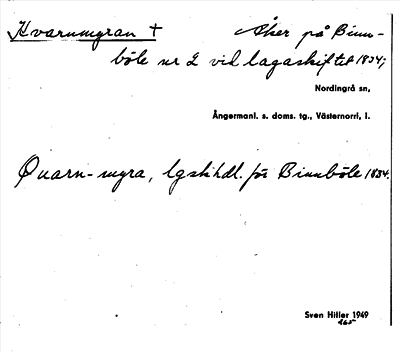 Kvarnmyran † Åker på Binn-
böle nr 2 vid lagaskiftet 1834;
Nordingrå sn,
Ångermanl. s. doms. tg., Västernorrl, l.
Quarn-myra, lgskhdl. för Binnböle 1834.
Sven Hitler 1949